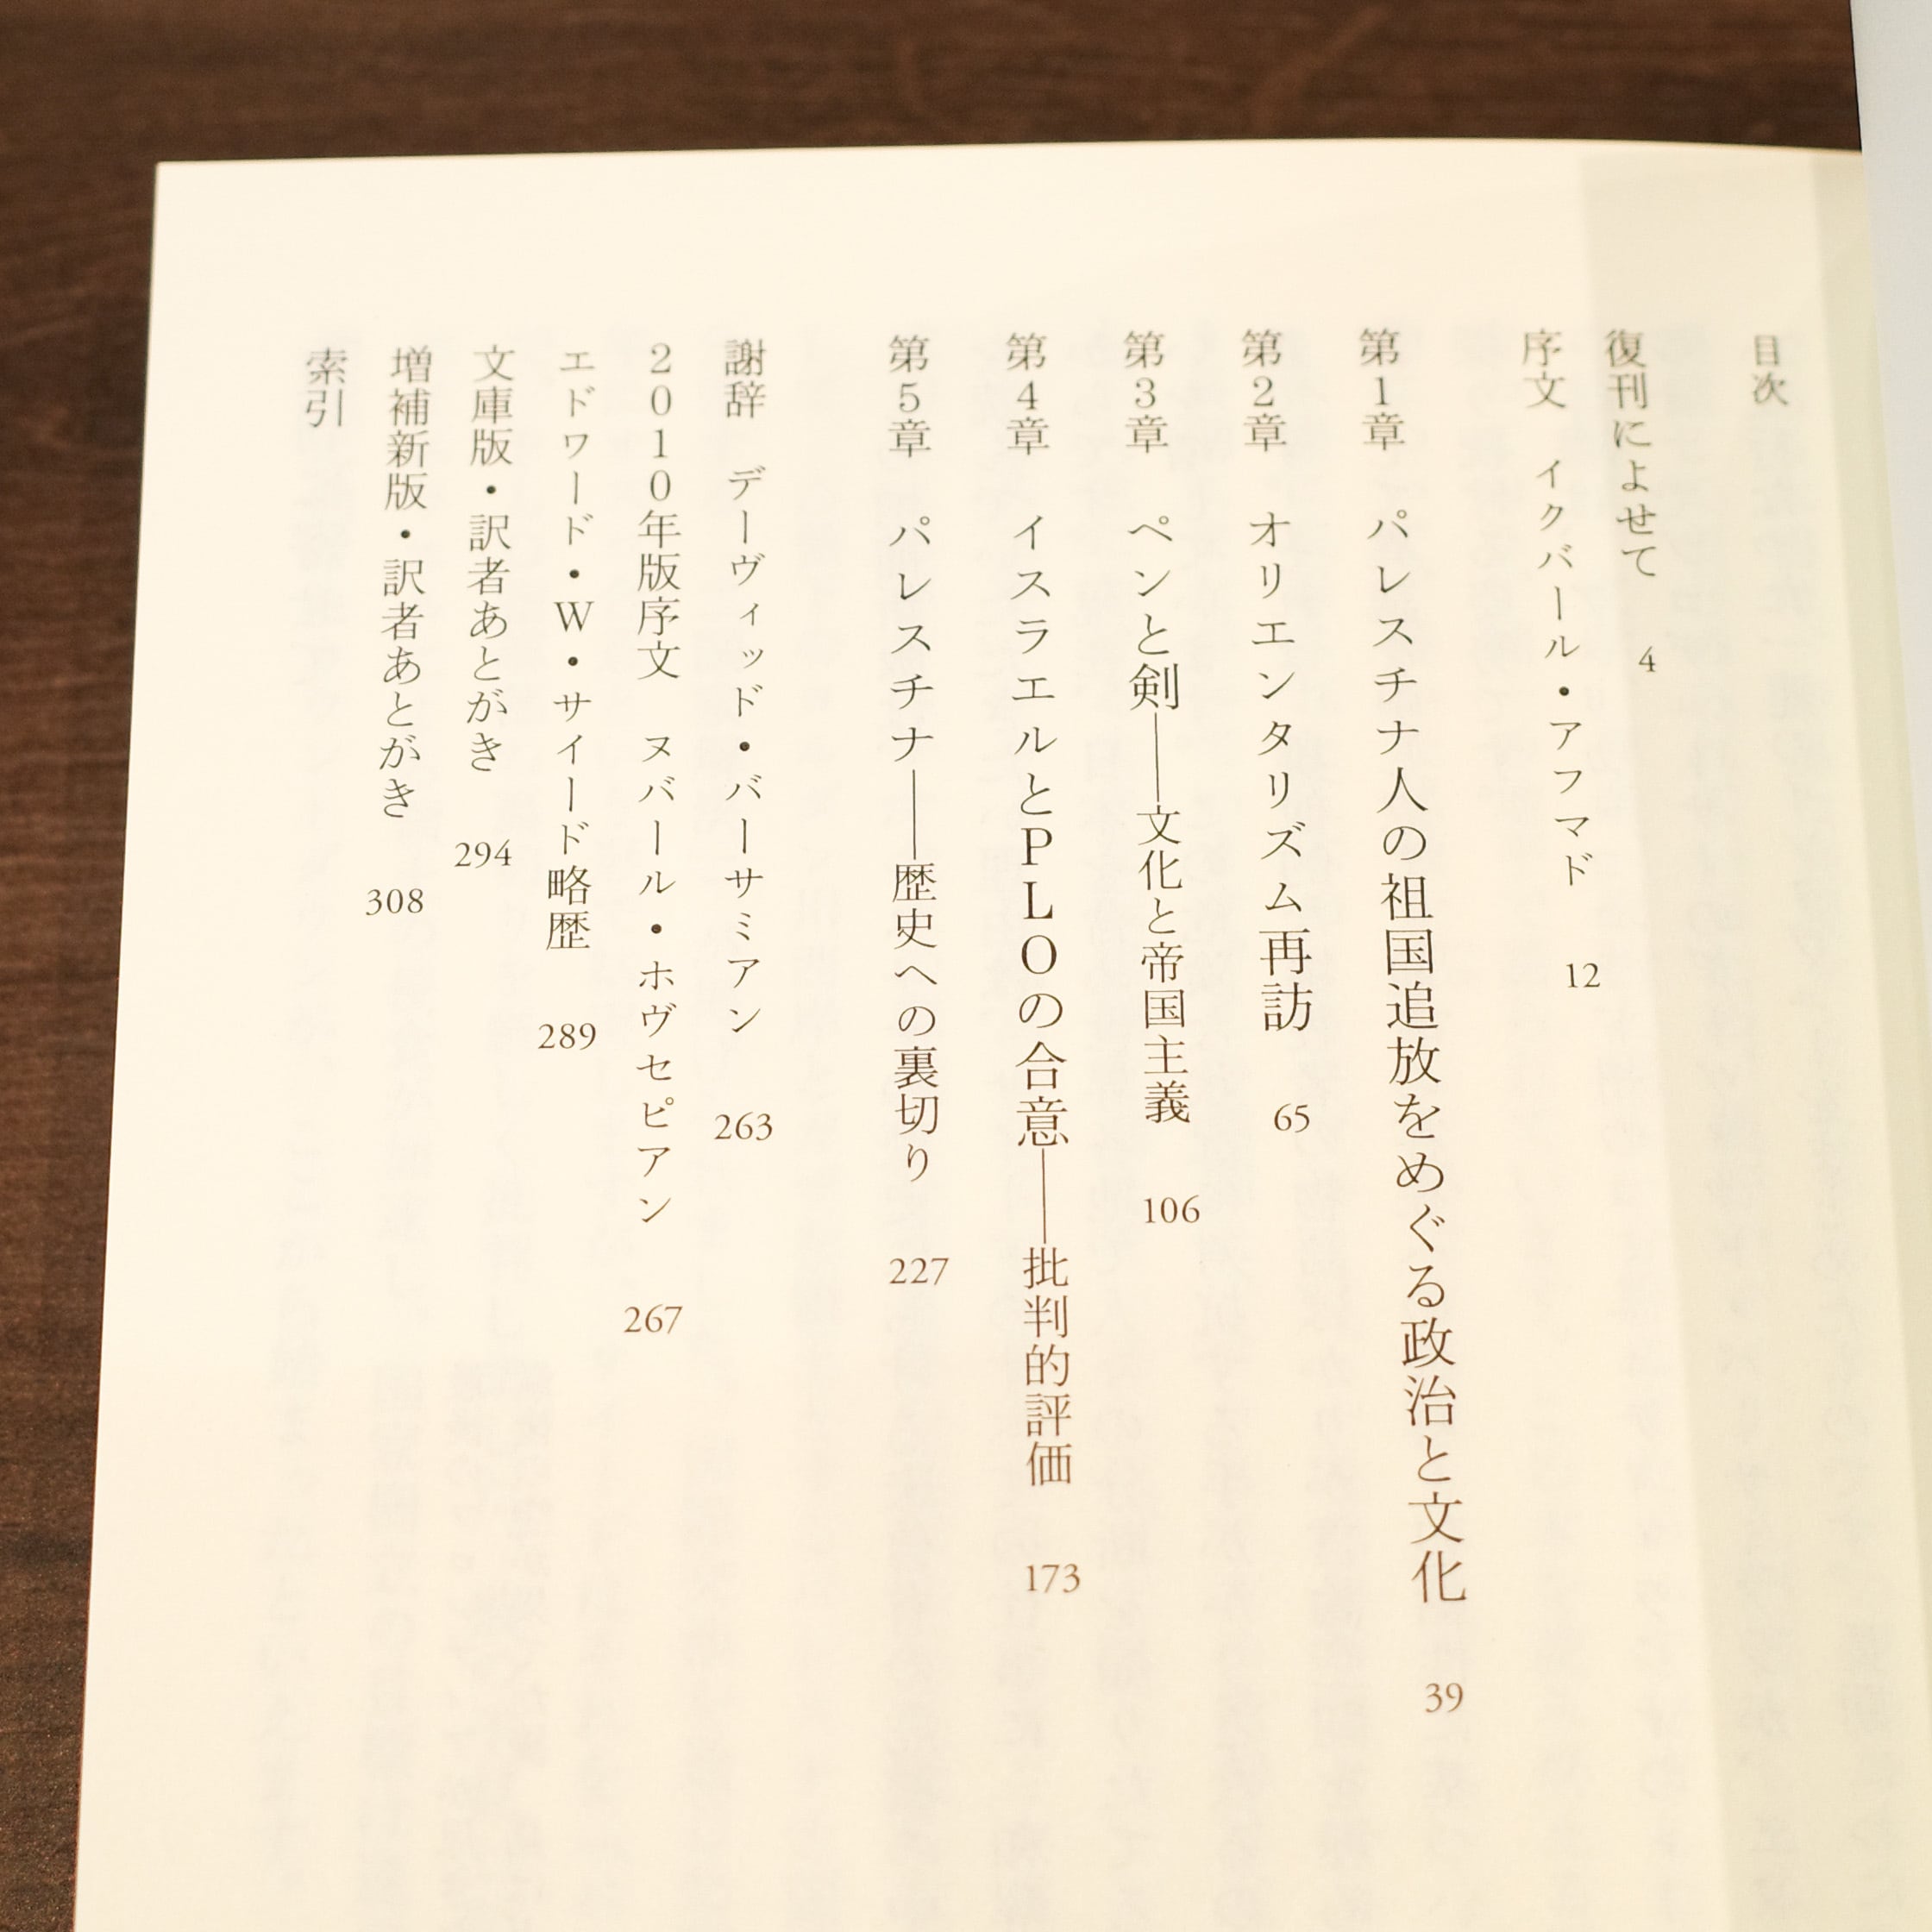 目次
復刊によせて 4
序文 イクバール・アフマド 12
第1章 パレスチナ人の祖国追放をめぐる政治と文化 39
第2章 オリエンタリズム再訪 65
第3章 ペンと剣――文化と帝国主義 106
第4章 イスラエルとPLOの合意――批判的評価 173
第5章 パレスチナ――歴史への裏切り 227
謝辞 デーヴィッド・バーサミアン 263
2010年版序文 ヌバール・ホヴセピアン 267
エドワード・W・サイード略歴 289
文庫版・訳者あとがき 294
増補新版・訳者あとがき 308
索引